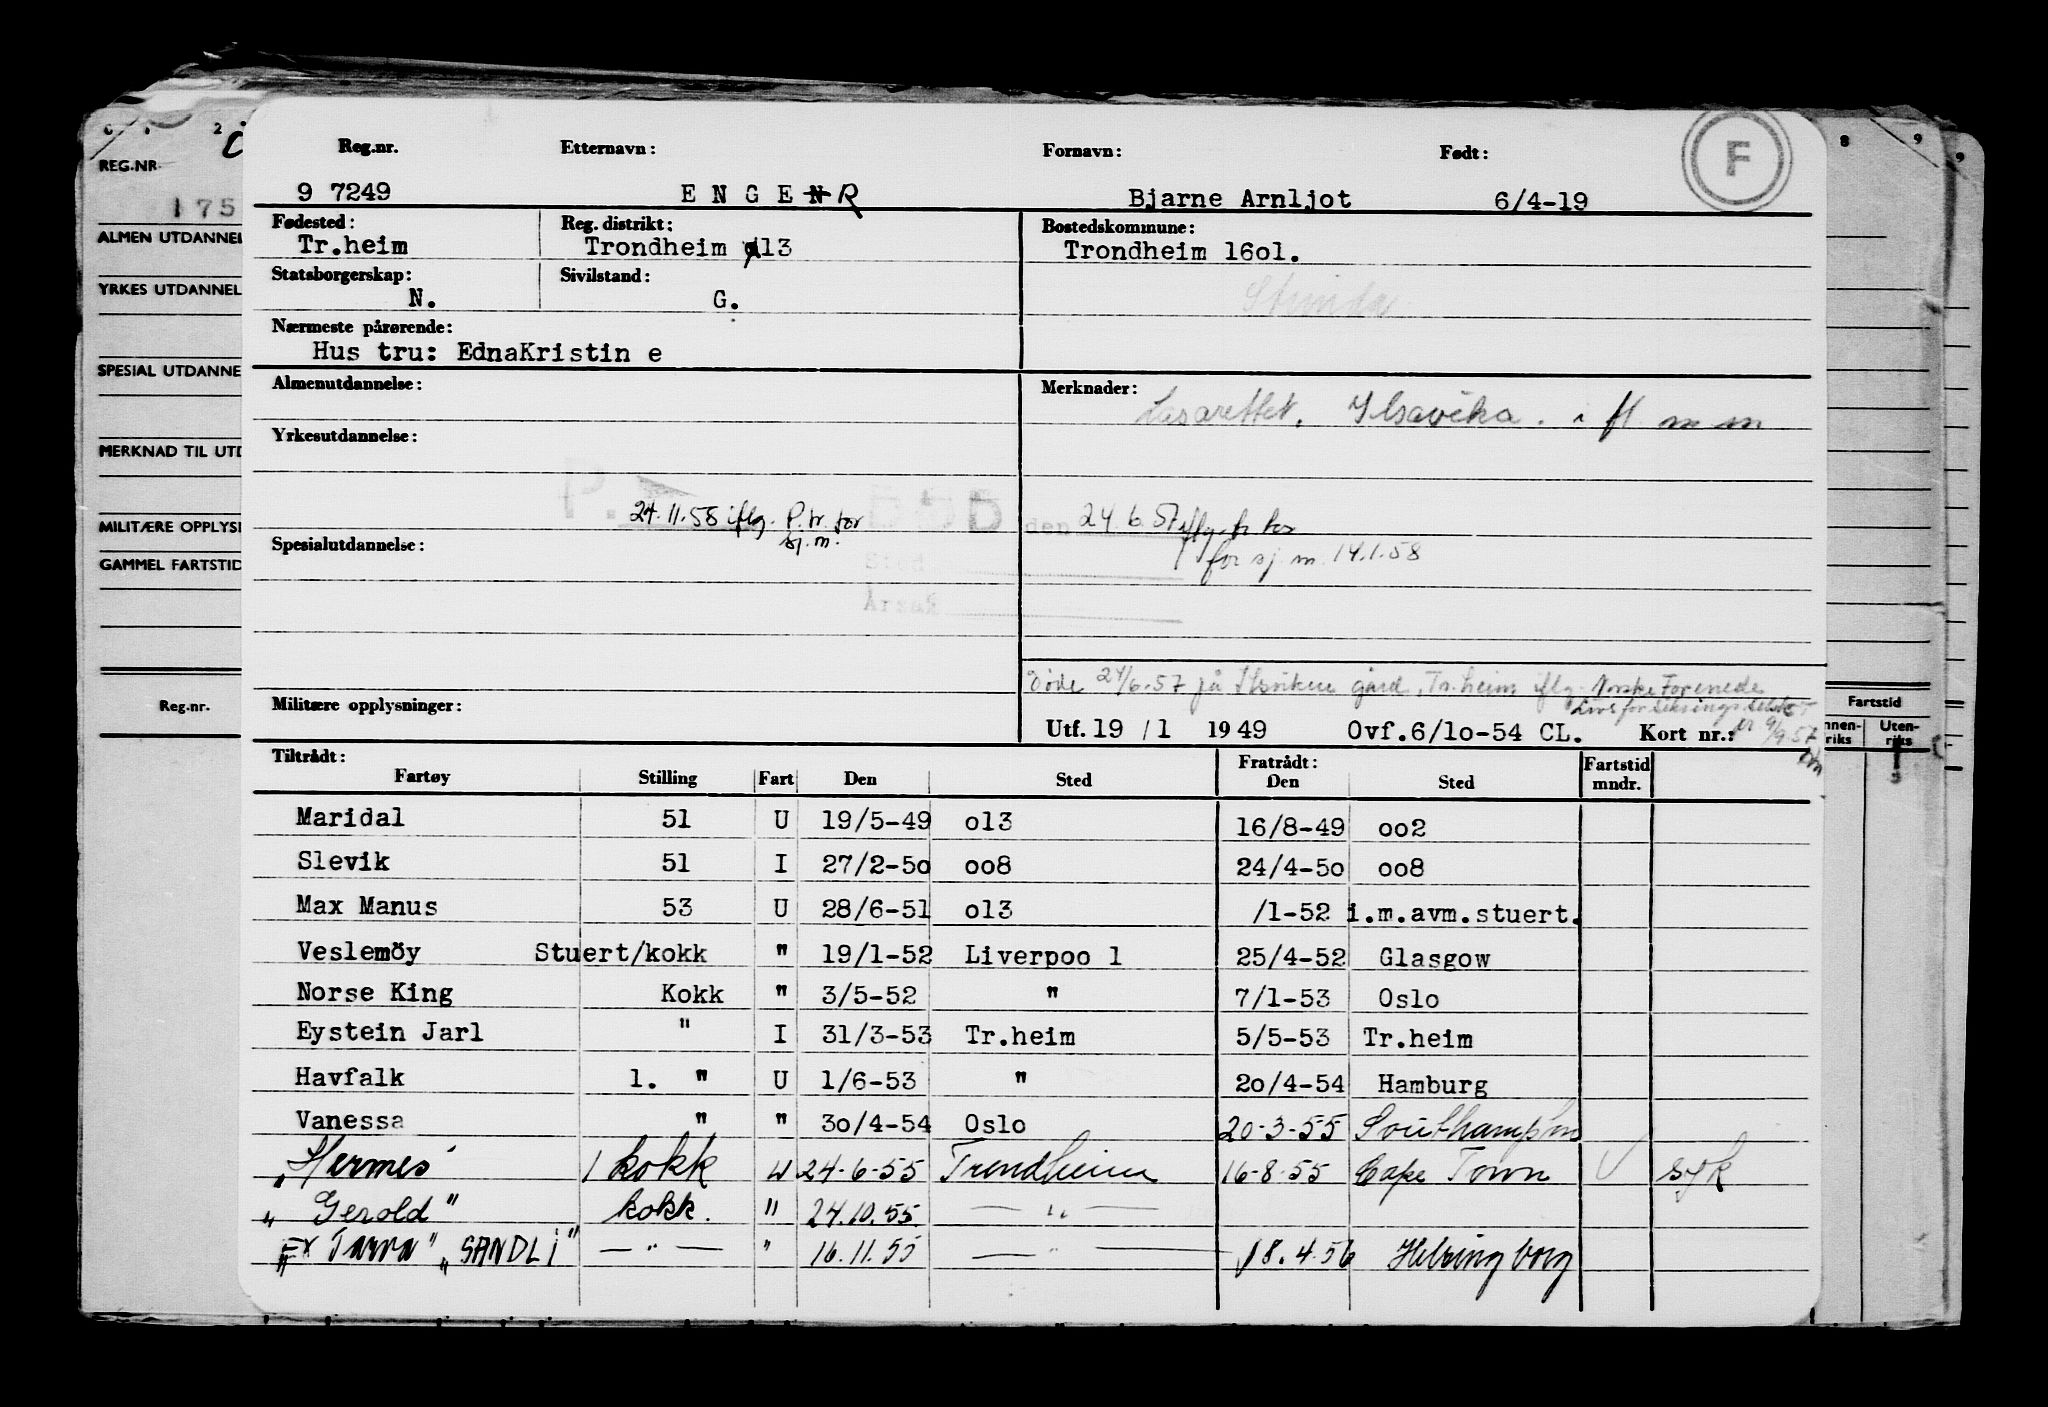 Reg.nr. Etternavn: Fornavn: Født: F
9 7249 E N G E N R Bjarne Arnljot 6/4-19
Fødested: Reg. distrikt: Bostedskommune:
Tr.heim Trondheim 013 Trondheim 16o1.
Statsborgerskap: Sivilstand:
N. G. Strinda
Nærmeste pårørende:
Hus tru: EdnaKristin e
Almenutdannelse: Merknader:
Lasarettet. Ilsavika. i fl. m m
Yrkesutdannelse:
P. DØD den 24.6.57 iflg.
24.11.58 iflg. P. tr. for
sj.m.
for sj.m. 14.1.58
Spesialutdannelse:
Sted
Årsak
Døde 24/6-57 på Ilsviken gård, Tr.heim iflg. Norske Forenede
Livsforsikrings
9/9.57
Militære opplysninger:
Utf. 19 / 1 1949 Ovf.6/1o-54 CL. Kort nr.:
Tiltrådt: Fratrådt:
Fartøy Stilling Fart Den Sted Den Sted Fartstid mndr.
Maridal 51 U 19/5-49 o13 16/8-49 oo2
Slevik 51 I 27/2-5o oo8 24/4-5o oo8
Max Manus 53 U 28/6-51 o13 /1-52 i.m.avm.stuert.
Veslemöy Stuert/kokk " 19/1-52 Liverpoo l 25/4-52 Glasgow
Norse King Kokk " 3/5-52 " 7/1-53 Oslo
Eystein Jarl " I 31/3-53 Tr.heim 5/5-53 Tr.heim
Havfalk 1. " U 1/6-53 " 2o/4-54 Hamburg
Vanessa " " 3o/4-54 Oslo 20-3-55 Southampton
"Hermes" 1 kokk U 24-6-55 Trondheim 16-8-55 Cape Town syk
"Gerold" kokk. " 24.10.55. — " —
"Ex Tarva" "SANDLI" — " — " 16.11.55 — " — 18.4.56 Helsingborg
REG.NR
175
ALMEN UTDANNEL
YRKES UTDANNEL
SPESIAL UTDANNE
MERKNAD TIL UTD
MILITÆRE OPPLYSI
GAMMEL FARTSTID
Reg.nr.
8 9 9
Fartstid
nnen-
riks
Uten-
riks